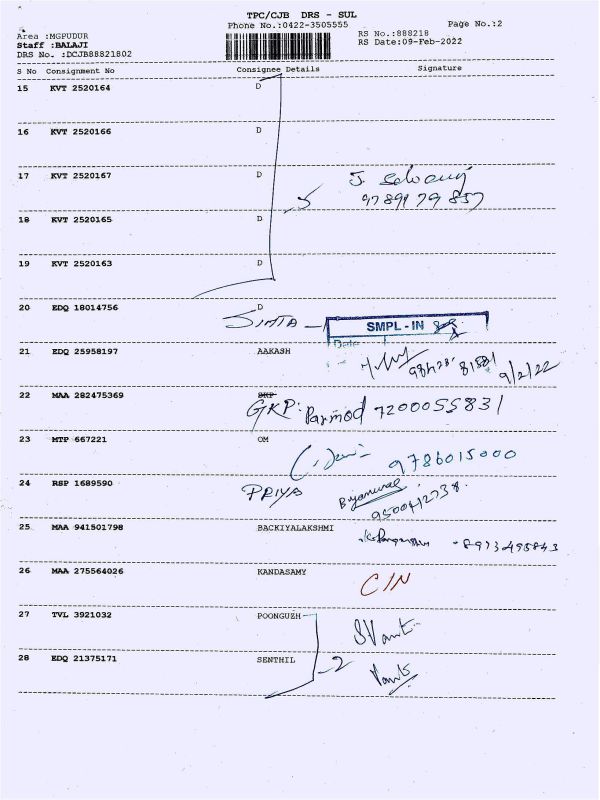 TPC/CJB DRS - SUL
Phone No.:0422-3505555
Page No.:2
Area :MGPUDUR
RS No.:888218
Staff :BALAJI
RS Date:09-Feb-2022
DRS No. :DCJB88821802
S No Consignment No Consignee Details Signature
15 KVT 2520164 D
16 KVT 2520166 D
17 KVT 2520167 D
5
9789179857
18 KVT 2520165 D
19 KVT 2520163 D
20 EDQ 18014756 D
SMPL - IN
Date
21 EDQ 25958197 AAKASH
9/2/22
22 MAA 282475369
GKP: Parmod 7200055831
23 MTP 667221 OM
9786015000
24 RSP 1689590
PRIYA
9500412738.
25 MAA 941501798 BACKIYALAKSHMI
8973495843
26 MAA 275564026 KANDASAMY
CIN
27 TVL 3921032 POONGUZH
28 EDQ 21375171 SENTHIL
2